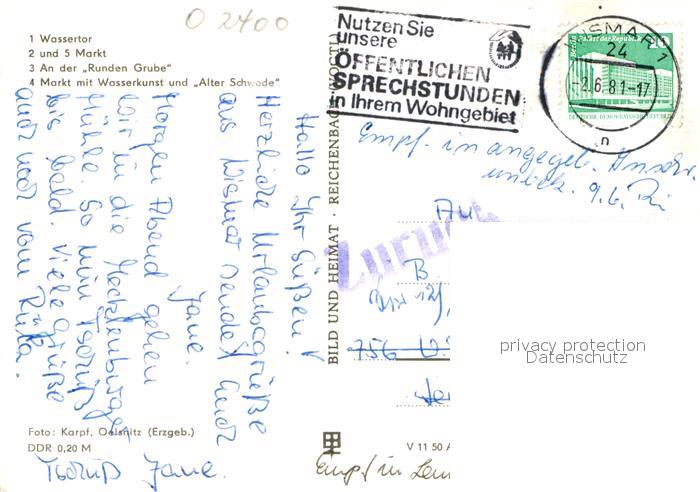 O 2400
1 Wassertor
2 und 5 Markt
3 An der „Runden Grube“
4 Markt mit Wasserkunst und „Alter Schwede“
Hallo Ihr Süßen!
Herzliche Urlaubsgrüße
aus Wismar sendet Euch
Jane.
Morgen Abend gehen
wir in die Mecklenburger
Mühle. So nun Tschüß
bis bald. Viele Grüße
auch von
Foto: Karpf, Oelsnitz (Erzgeb.)
DDR 0,20 M
Tschüß Jane.
BILD UND HEIMAT · REICHENBACH (VOGTL)
Nutzen Sie
unsere
ÖFFENTLICHEN
SPRECHSTUNDEN
in Ihrem Wohngebiet
WISMAR 1
24
-2.6.81-17
n
Berlin, Palast der Republik
DEUTSCHE DEMOKRATISCHE REPUBLIK
Empf. in angegeb. Anschr.
unbek. 9.6.
Zurück
An
B
756
V 11 50 A
Empf in
privacy protection
Datenschutz